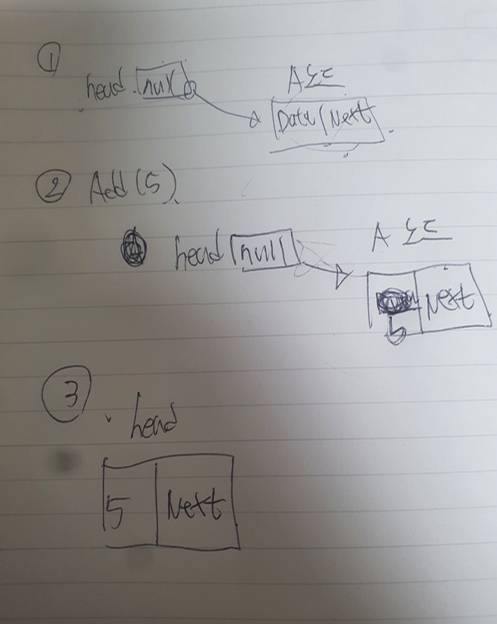 ①
head null
A 노드
Data Next
② Add(5)
head null
A 노드
5 Next
③
head
5 Next